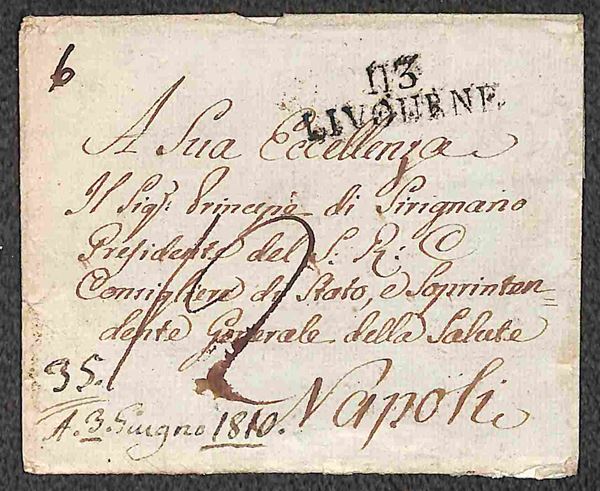 6
113
LIVOURNE
A Sua Eccellenza
Il Sig.r Principe di Sirignano
Presidente del S. R: C
Consigliere di Stato, e Soprinten=
dente Generale della Salute
12
Napoli
35.
A. 3. Giugno 1810.